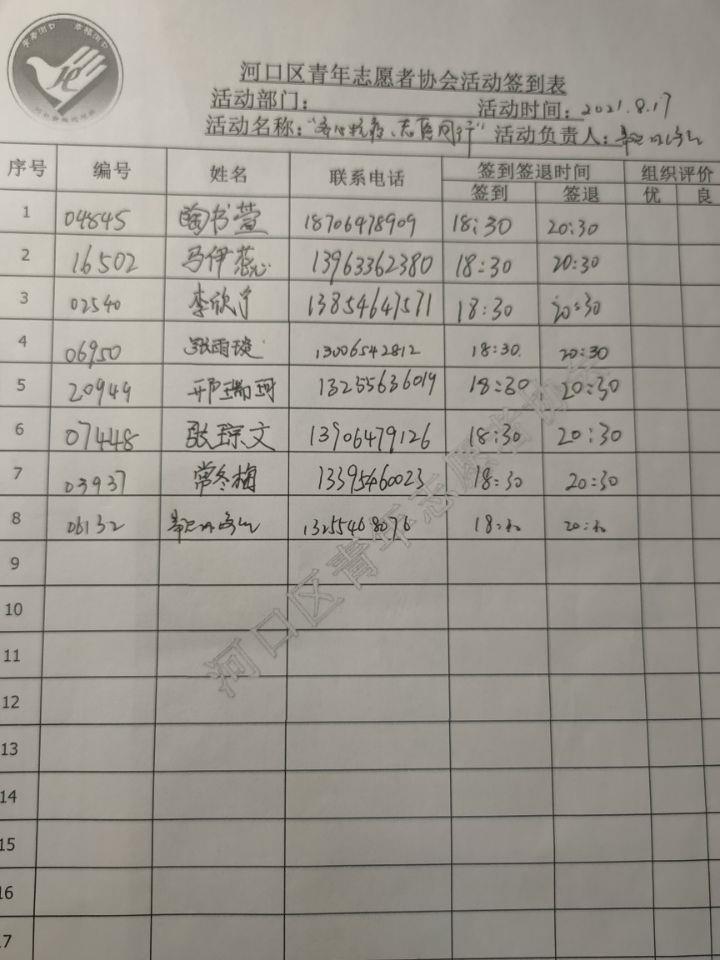 河口区青年志愿者协会活动签到表
活动部门: 活动时间: 2021.8.17
活动名称: 志愿同行" 活动负责人:
序号 编号 姓名 联系电话 签到签退时间 组织评价
签到 签退 优 良
1 04845 陶书萱 18706478909 18:30 20:30
2 16502 马伊蕊 13963362380 18:30 20:30
3 02540 李欣宁 13854647571 18:30 20:30
4 06950 张雨琁 13006542812 18:30 20:30
5 20949 邢瑞珂 13255636019 18:30 20:30
6 07448 张琮文 13906479126 18:30 20:30
7 03937 常冬梅 13395460023 18:30 20:30
8 06132 13255468076 18:30 20:30
9
10
11
12
13
14
15
16
17
河口区青年志愿者协会